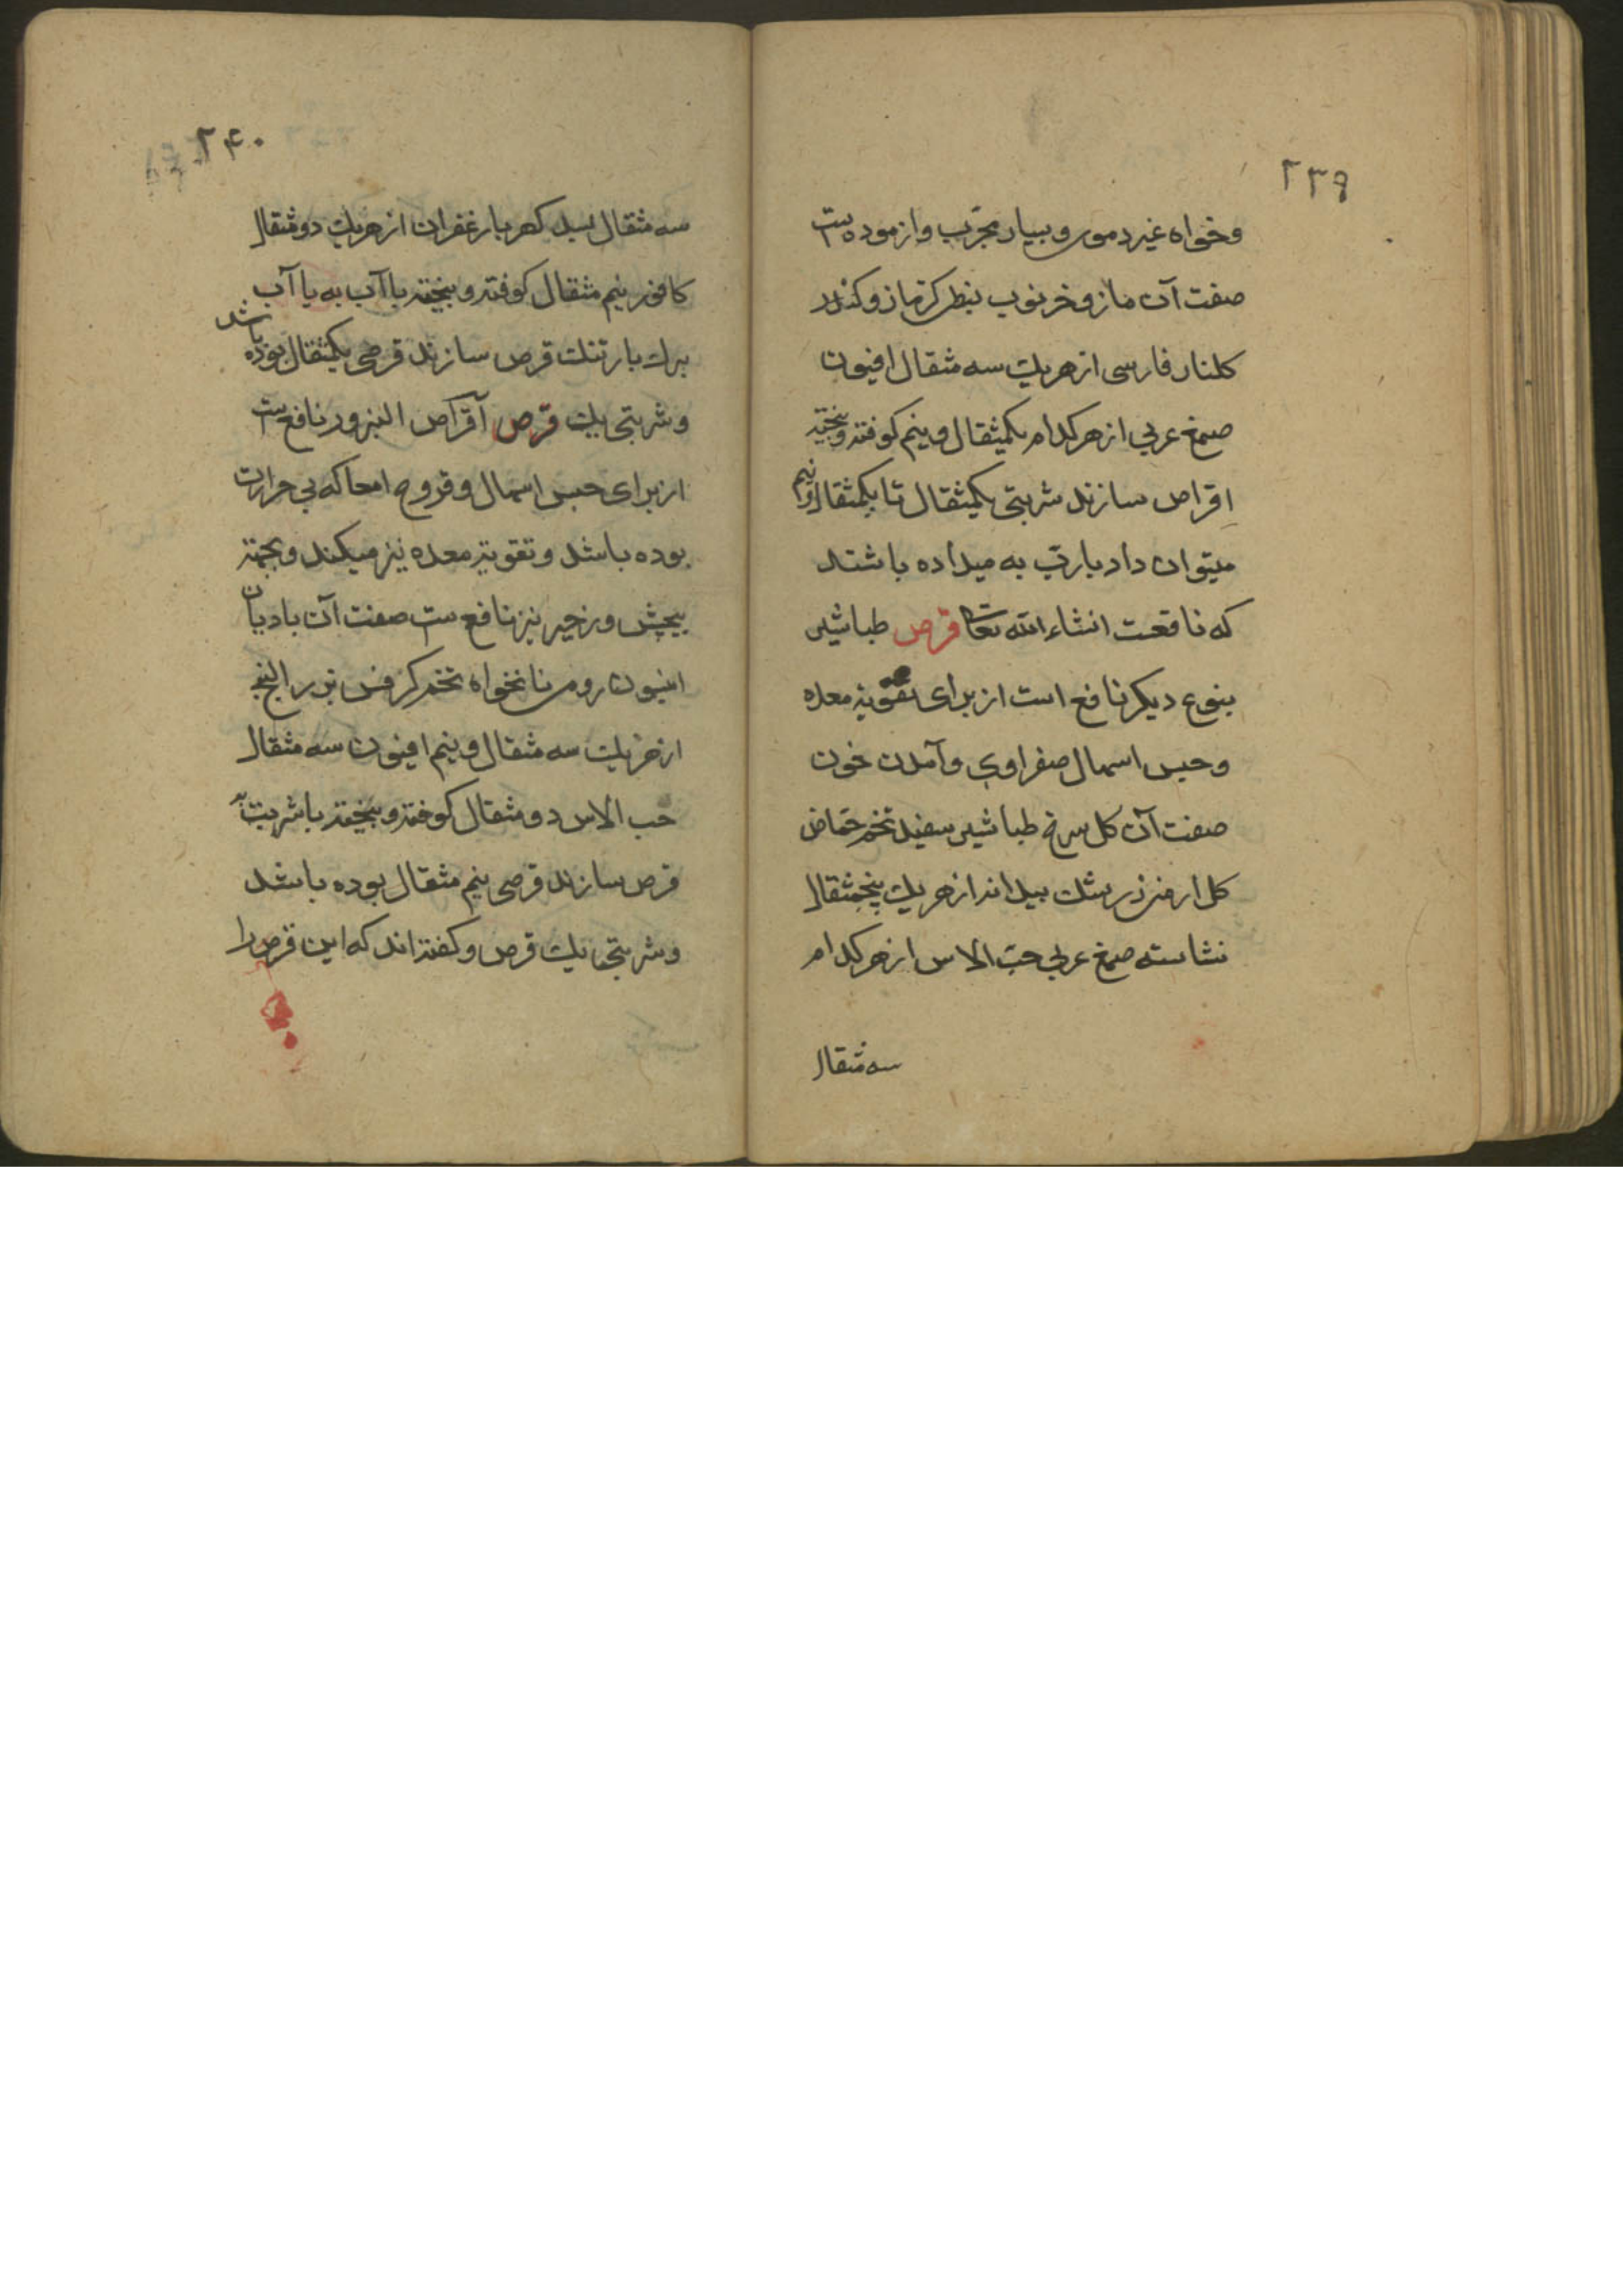 ۲۳۹
وخواه غیر دموی و بسیار مجرّب وازموده است
صفت آن مازو خرنوب نبطی کزمازو کندر
کلنار فارسی از هریک سه مثقال افیون
صمغ عربی از هرکدام یکمیثقال و نیم کوفته و بیخته
اقراص سازند شربتی یکمیثقال تا یکمثقال و نیم
میتوان داد بارُبّ به میداده باشند
که نافعست انشاء الله تعالی قرص طباشیر
بنوع دیکر نافع است از برای تقویة معده
وحبس اسهال صفراوی وآمدن خون
صفت آن کل سرخ طباشیر سفید تخم حمّاض
کل ارمنی زرشک بیدانه از هریک پنجمثقال
نشاسته صمغ عربی حبّ الاس از هرکدام
سه مثقال
۲۴۰
سه مثقال بسد کهربا زعفران از هریک دو مثقال
کافور نیم مثقال کوفته و بیخته با آب به یا آب
برک بارتنک قرص سازند قرصی یکمثقال بوده باشد
وشربتی یک قرص قرص آقراص البزور نافع است
از برای حبس اسهال و قروح امعا که بی حرارت
بوده باشد و تقویة معده نیز میکند و بجهة
پیچش و زحیر نیز نافع است صفت آن بادیان
انیسون رومی نانخواه تخم کرفس بزر البنج
از هریک سه مثقال و نیم افیون سه مثقال
حب الاس دو مثقال کوفته و بیخته با شربت به
قرص سازند قرصی نیم مثقال بوده باشد
وشربتی یک قرص و کفته اند که این قرص را